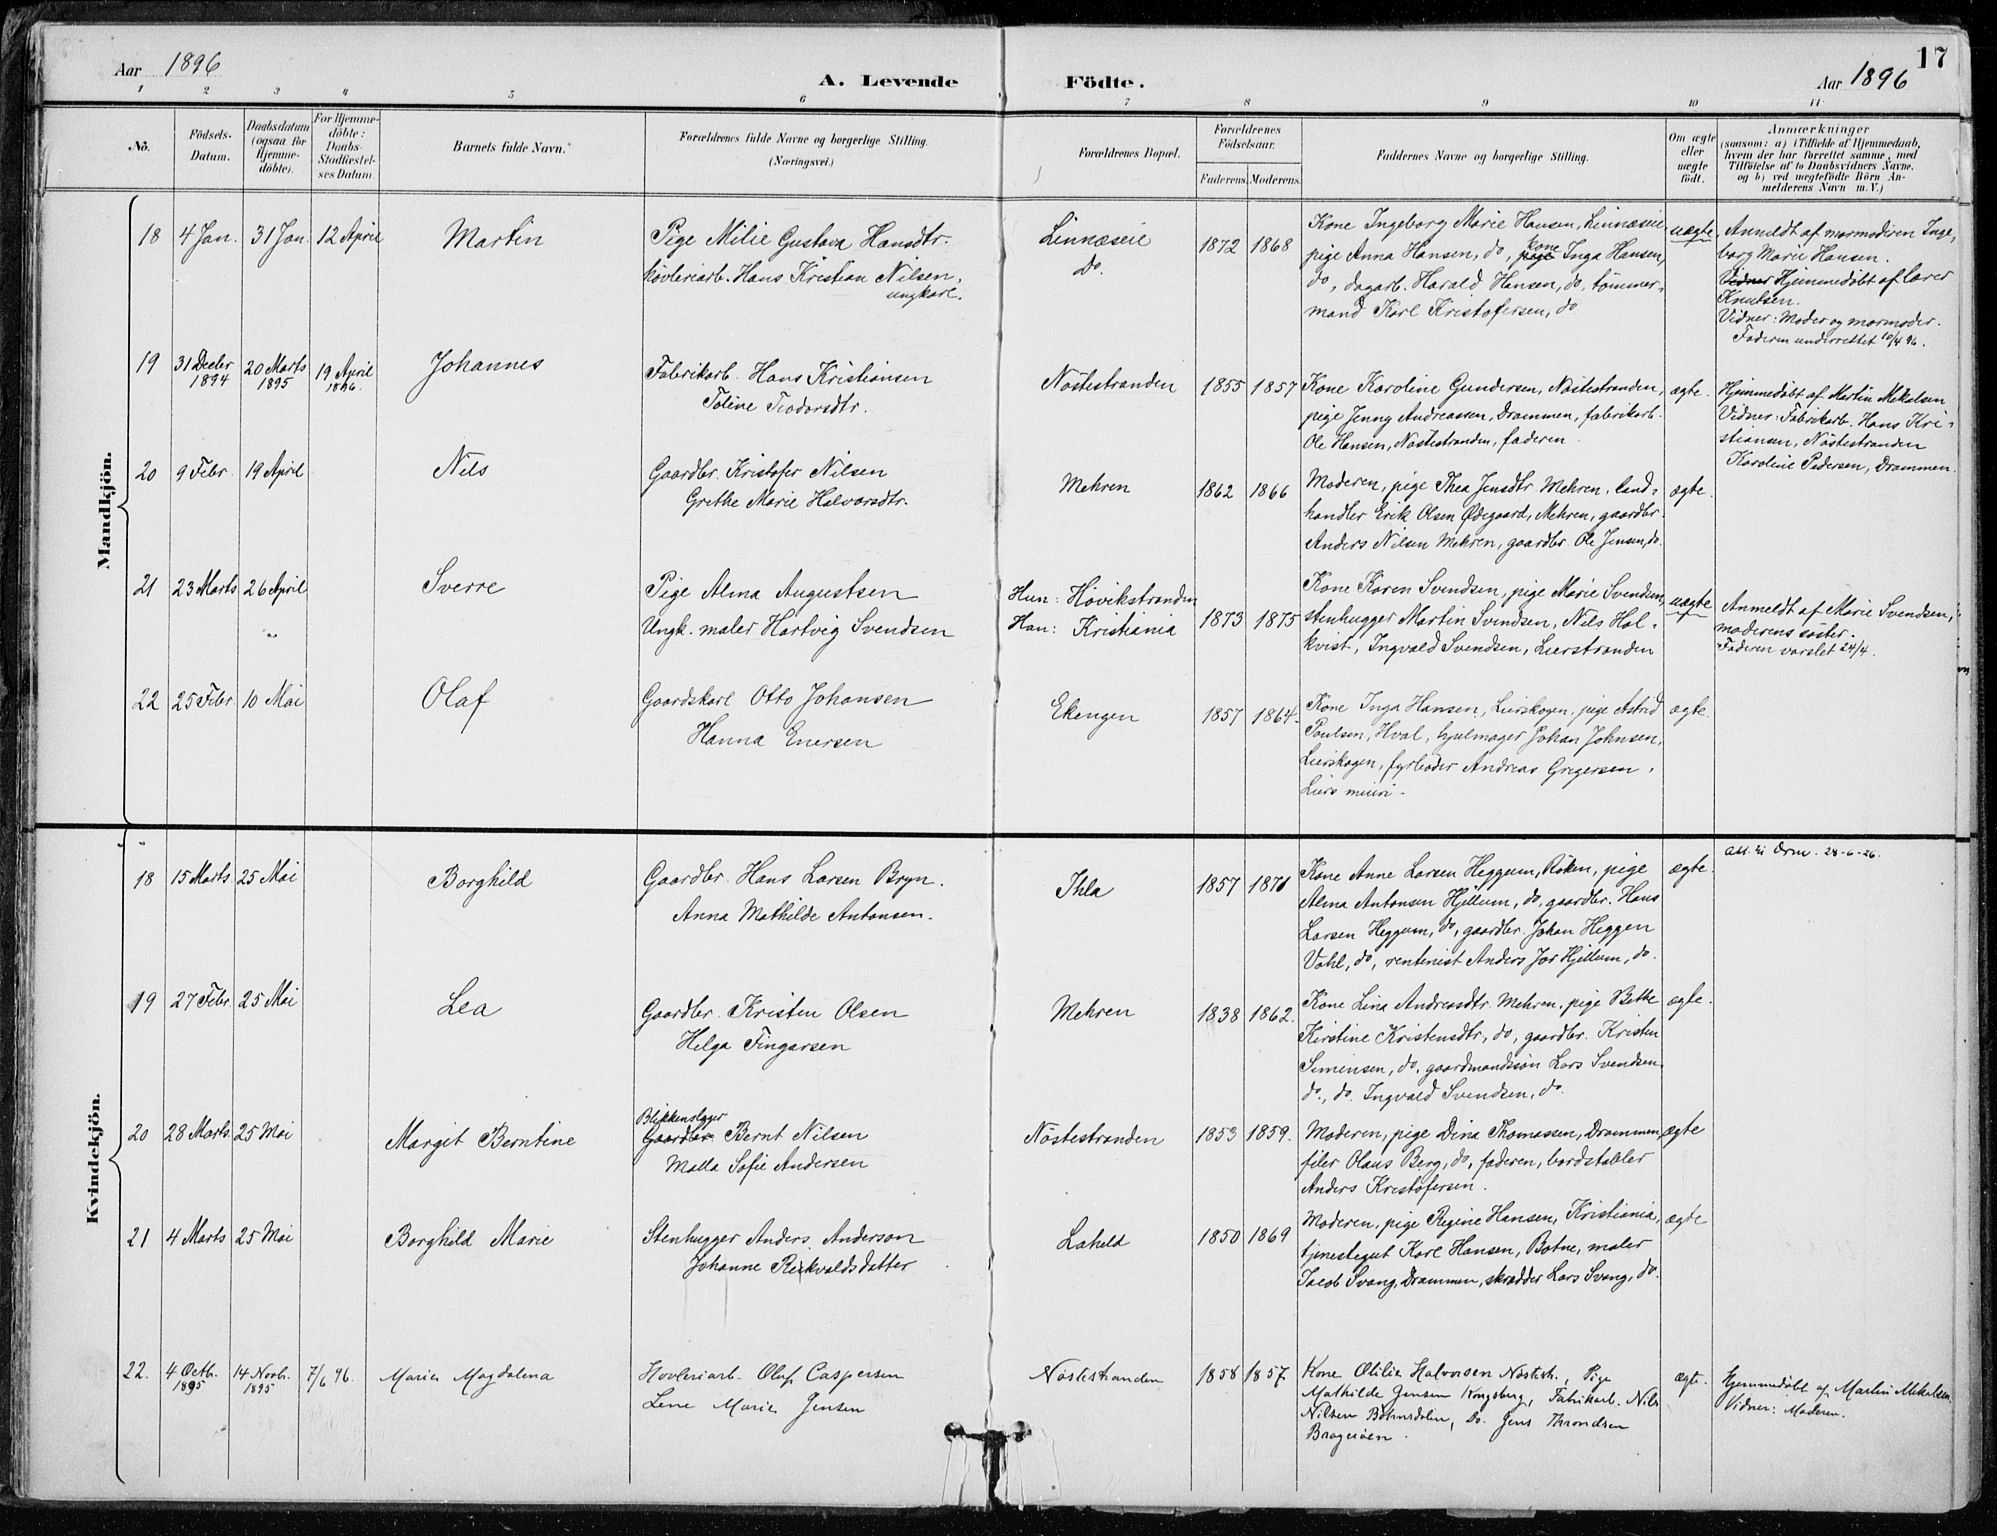 17
Aar 1896
A. Levende Födte.
Aar 1896
1 2 3 4 5 6 7 8 9 10 11
No.
Födsels-
Datum.
Daabsdatum
(ogsaa for
Hjemme-
döbte).
For Hjemme-
döbte:
Daabs-
Stadfæstel-
ses Datum.
Barnets fulde Navn.
Forældrenes fulde Navne og borgerlige Stilling.
(Næringsvei.)
Forældrenes Bopæl.
Forældrenes
Födselsaar.
Faderens. Moderens.
Faddernes Navne og borgerlige Stilling.
Om ægte
eller
uægte
födt.
Anmærkninger
(saasom: a) i Tilfælde af Hjemmedaab,
hvem der har forrettet samme, med
Tilföielse af to Daabsvidners Navne.
og b) ved uægtefödte Börn An-
melderens Navn m. V.)
Mandkjön.
18 4 Jan. 31 Jan. 12 April Martin
Pige Milie Gustava Hansdtr.
høvleriarb. Hans Kristian Nilsen,
ungkarl.
Linnæseie
do.
1872 1868
Kone Ingeborg Marie Hansen, Linnæseie
pige Anna Hansen, do, pige kone Inga Hansen,
do, dagarb. Harald Hansen, do, tømmer-
mand Karl Kristofersen, do
uægte
Anmeldt af mormoderen Inge-
borg Marie Hansen.
Vidner Hjemmedøbt af lærer
Knutsen.
Vidner: Moder og mormoder.
Faderen underrettet 10/4 96.
19 31 Decbr 1894 20 Marts 1895 19 April 1896 Johannes
Fabrikarb. Hans Kristiansen
Toline Teodorsdtr.
Nøstestranden
1855 1857
Kone Karoline Gundersen, Nøstestranden,
pige Jenny Andreassen, Drammen, fabrikarb.
Ole Hansen, Nøstestranden, faderen
ægte.
Hjemmedøbt af Martin Mekelsen
Vidner: Fabrikarb. Hans Kri-
stiansen, Nøstestranden
Karoline Pedersen, Drammen.
20 9 Febr. 19 April Nils
Gaardbr. Kristofer Nilsen
Grethe Marie Halvorsdtr.
Mehren
1862 1866
Moderen, pige Thea Jensdtr. Mehren, land-
handler Erik Olsen Ødegaard, Mehren, gaardbr.
Anders Nilsen Mehren, gaardbr. Ole Jensen, do.
ægte.
21 23 Marts 26 April Sverre
Pige Alma Augustsen
Ungk. maler Hartvig Svendsen
Hun: Høvikstranden
Han: Kristiania
1873 1875
Kone Karen Svendsen, pige Marie Svendsen,
stenhugger Martin Svendsen, Nils Hol-
kvist, Ingvald Svendsen, Lierstranden
uægte
Anmeldt af Marie Svendsen,
moderens søster.
Faderen varslet 24/4.
22 25 Febr. 10 Mai Olaf
Gaardskarl Otto Johansen
Hanna Enersen
Ekengen
1857 1864.
Kone Inga Hansen, Lierskogen, pige Astrid
Poulsen, Hval, hjulmager Johan Johnsen,
Lierskogen, fyrbøder Andreas Gregersen,
Liers meieri.
ægte
Kvindekjön.
18 15 Marts 25 Mai Borghild
Gaardbr. Hans Larsen Bryn.
Anna Mathilde Antonsen.
Ihla
1857 1871
Kone Anne Larsen Heggum, Røken, pige
Alma Antonsen Hjellum, do, gaardbr. Hans
Larsen Heggum, do, gaardbr. Johan Heggen
Vahl, do, rentenist Anders Jor Hjellum, do.
ægte.
28-6-26.
19 27 Febr. 25 Mai Lea
Gaardbr. Kristen Olsen
Helga Fingarsen
Mehren
1838 1862.
Kone Lina Andreasdtr. Mehren, pige Bethe
Kirstine Kristensdtr, do, gaardbr. Kristen
Simensen, do, gaardmandssøn Lars Svendsen
do., do. Ingvald Svendsen, do.
ægte.
20 28 Marts. 25 Mai Margit Berntine
Blikkenslager
Gaardbr Bernt Nilsen
Malla Sofie Andersen
Nøstestranden
1853 1859.
Moderen, pige Dina Thomassen, Drammen,
filer Olaus Berg, do, faderen, bordstabler
Anders Kristofersen.
ægte
21 4 Marts 25 Mai Borghild Marie
Stenhugger Anders Anderson
Johanne Reikvaldsdatter
Laheld
1850 1869
Moderen, pige Regine Hansen, Kristiania,
tjenestegut Karl Hansen, Botne, maler
Jacob Svang, Drammen, skrædder Lars Svang, do.
ægte
22. 4 Octb. 1895 14 Novb. 1895 7/6 96. Marie Magdalena
Hovleriarb. Oluf Caspersen
Lene Marie Jensen
Nöstestranden
1858 1857
Kone Otilia Halvorsen Nöstestr., Pige
Mathilde Jensen Kongsberg, Fabrikarb. Nils
Nilsen Böhmsdalen, Do. Jens Throndsen
Brageröen.
ægte.
Hjemmedöbt af Martin Mekelsen.
Vidner: Moderen.